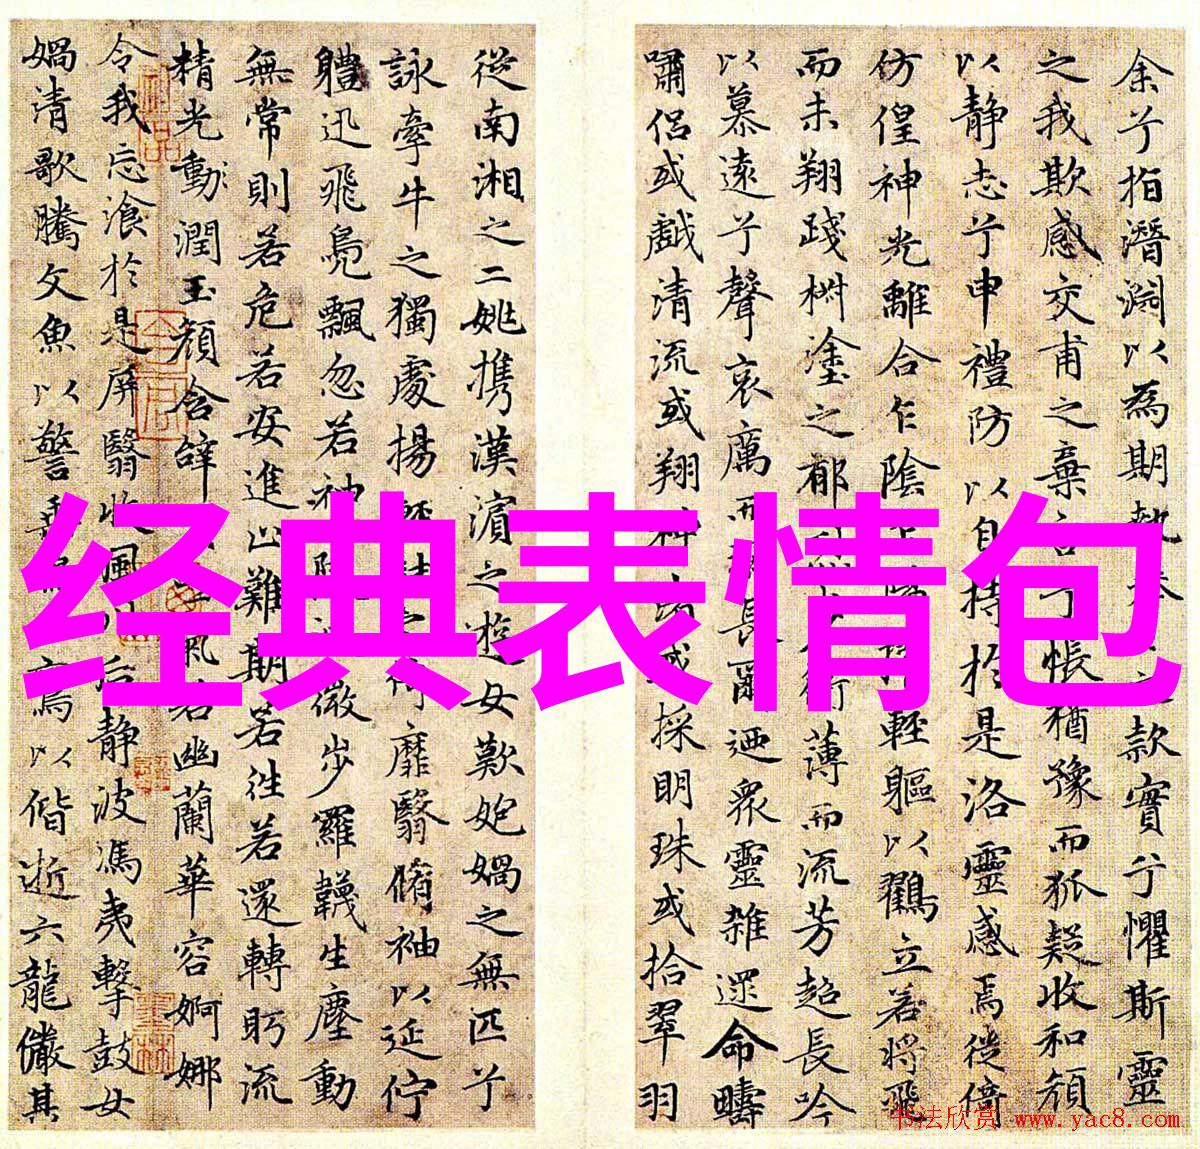 余兮指潛淵以為期執之款實兮懼斯靈
之我欺感交甫之棄言兮悵猶豫而狐疑收和顏
以静志兮申禮防以自持於是洛靈感焉徙倚
仿偟神光離合乍陰乍陽輕軀以鶴立若將飛
而未翔踐椒塗之郁烈步蘅薄而流芳超長吟
以慕遠兮聲哀厲而彌長爾迺衆靈雜遝命疇
嘯侶或戲清流或翔神渚或採明珠或拾翠羽
從南湘之二姚攜漢濱之遊女歎匏媧之無匹兮
詠牽牛之獨處揚輕袿之猗靡翳脩袖以延佇
體迅飛鳧飄忽若神陵波微步羅韤生塵動
無常則若危若安進止難期若往若還轉眄流
精光動潤玉顏含辭氣若幽蘭華容婀娜
令我忘飡於是屏翳收風川后静波馮夷擊鼓女
媧清歌騰文魚以警乘鸞以偕逝六龍儼其
经典表情包
书法欣赏 www.yac8.com